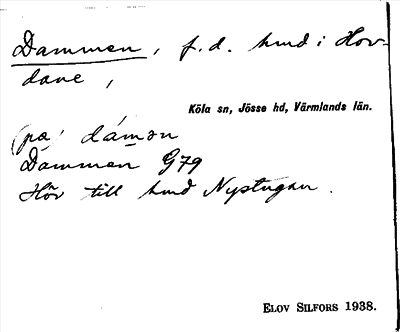 Dammen, f.d. hmd i Hov-
dane,
Köla sn, Jösse hd, Värmlands län.
(pa) dámən
Dammen G79
Hör till hmd Nystugan.
ELOV SILFORS 1938.